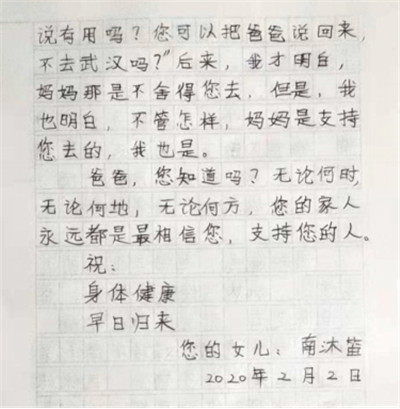 说有用吗？您可以把爸爸说回来，
不去武汉吗？”后来，我才明白，
妈妈那是不舍得您去，但是，我
也明白，不管怎样，妈妈是支持
您去的，我也是。
爸爸，您知道吗？无论何时，
无论何地，无论何方，您的家人
永远都是最相信您，支持您的人。
祝：
身体健康
早日归来
您的女儿：南沐笛
2020年2月2日